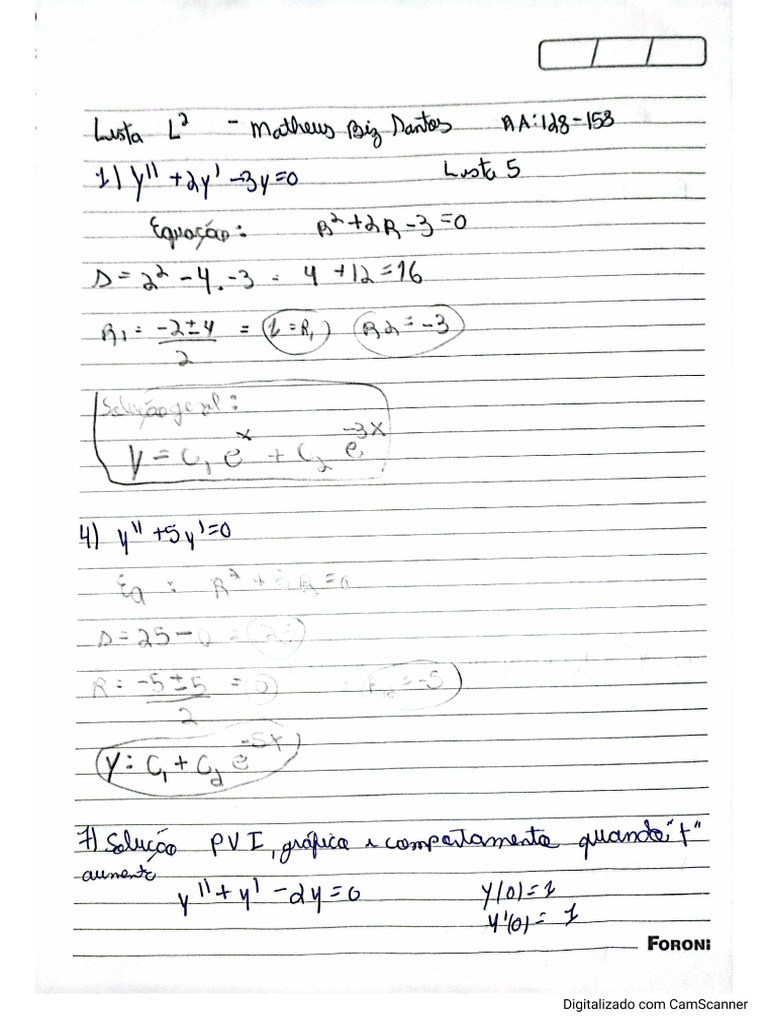 Lista L² - Matheus Biz Dantos RA: 128-153
1) y'' + 2y' - 3y = 0 Lista 5
Equação: R² + 2R - 3 = 0
D = 2² - 4 . -3 = 4 + 12 = 16
R₁ = -2 ± 4 / 2 = 1 = R₁ R2 = -3
Solução geral:
y = C₁ e^x + C₂ e^-3x
4) y'' + 5y' = 0
Eq : R² + 5R = 0
D = 25 - 0 = 25
R = -5 ± 5 / 2 = 0 R₂ = -5
y: C₁ + C₂ e^-5t
7) Solução PVI, gráfica e comportamento quando "t"
aumenta
y'' + y' - 2y = 0 y(0) = 1
y'(0) = 1
FORONI
Digitalizado com CamScanner